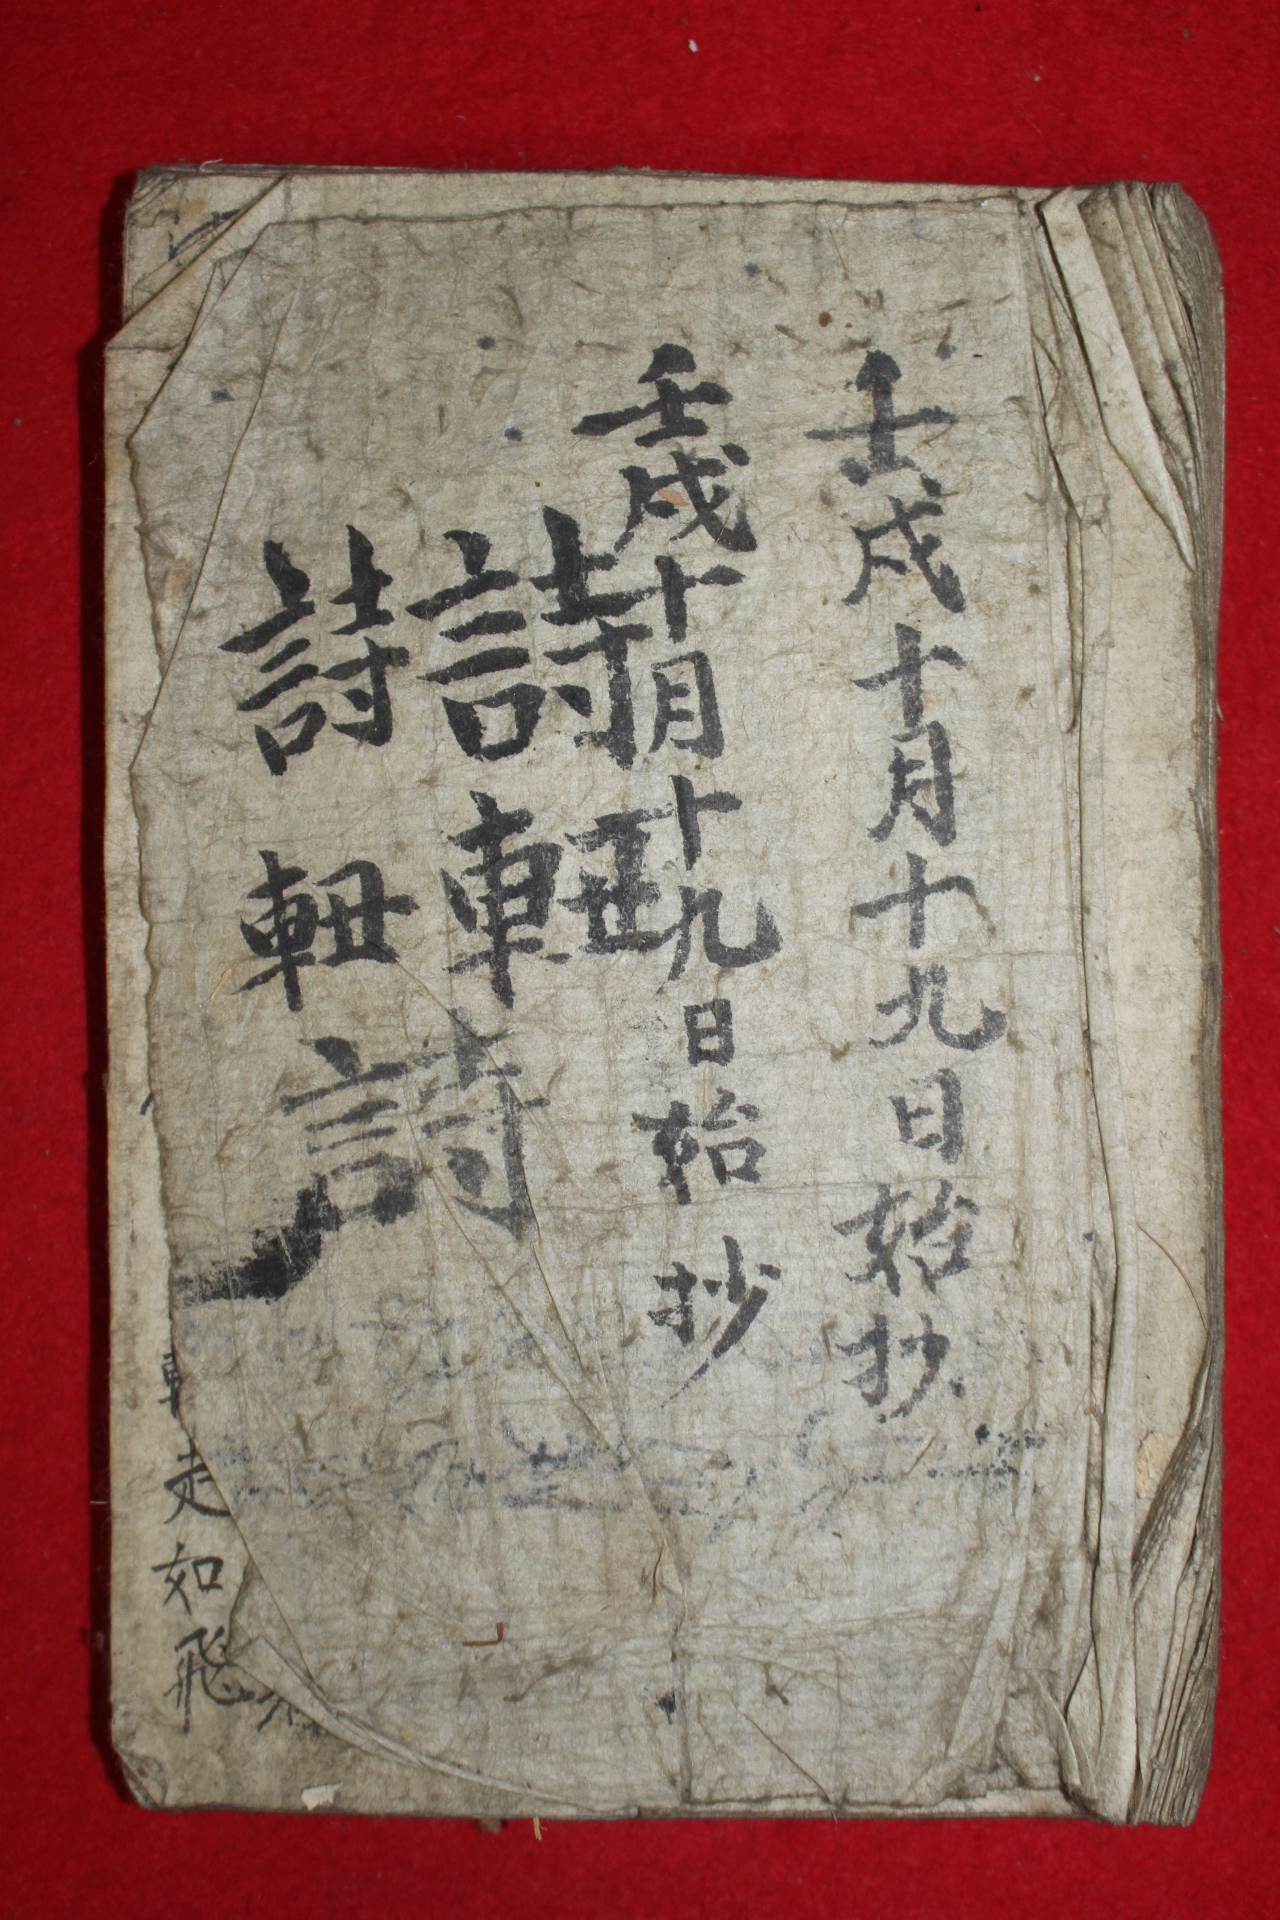 壬戌十月十九日始抄
壬戌十月十九日始抄
詩軸
詩軸
詩
走如飛